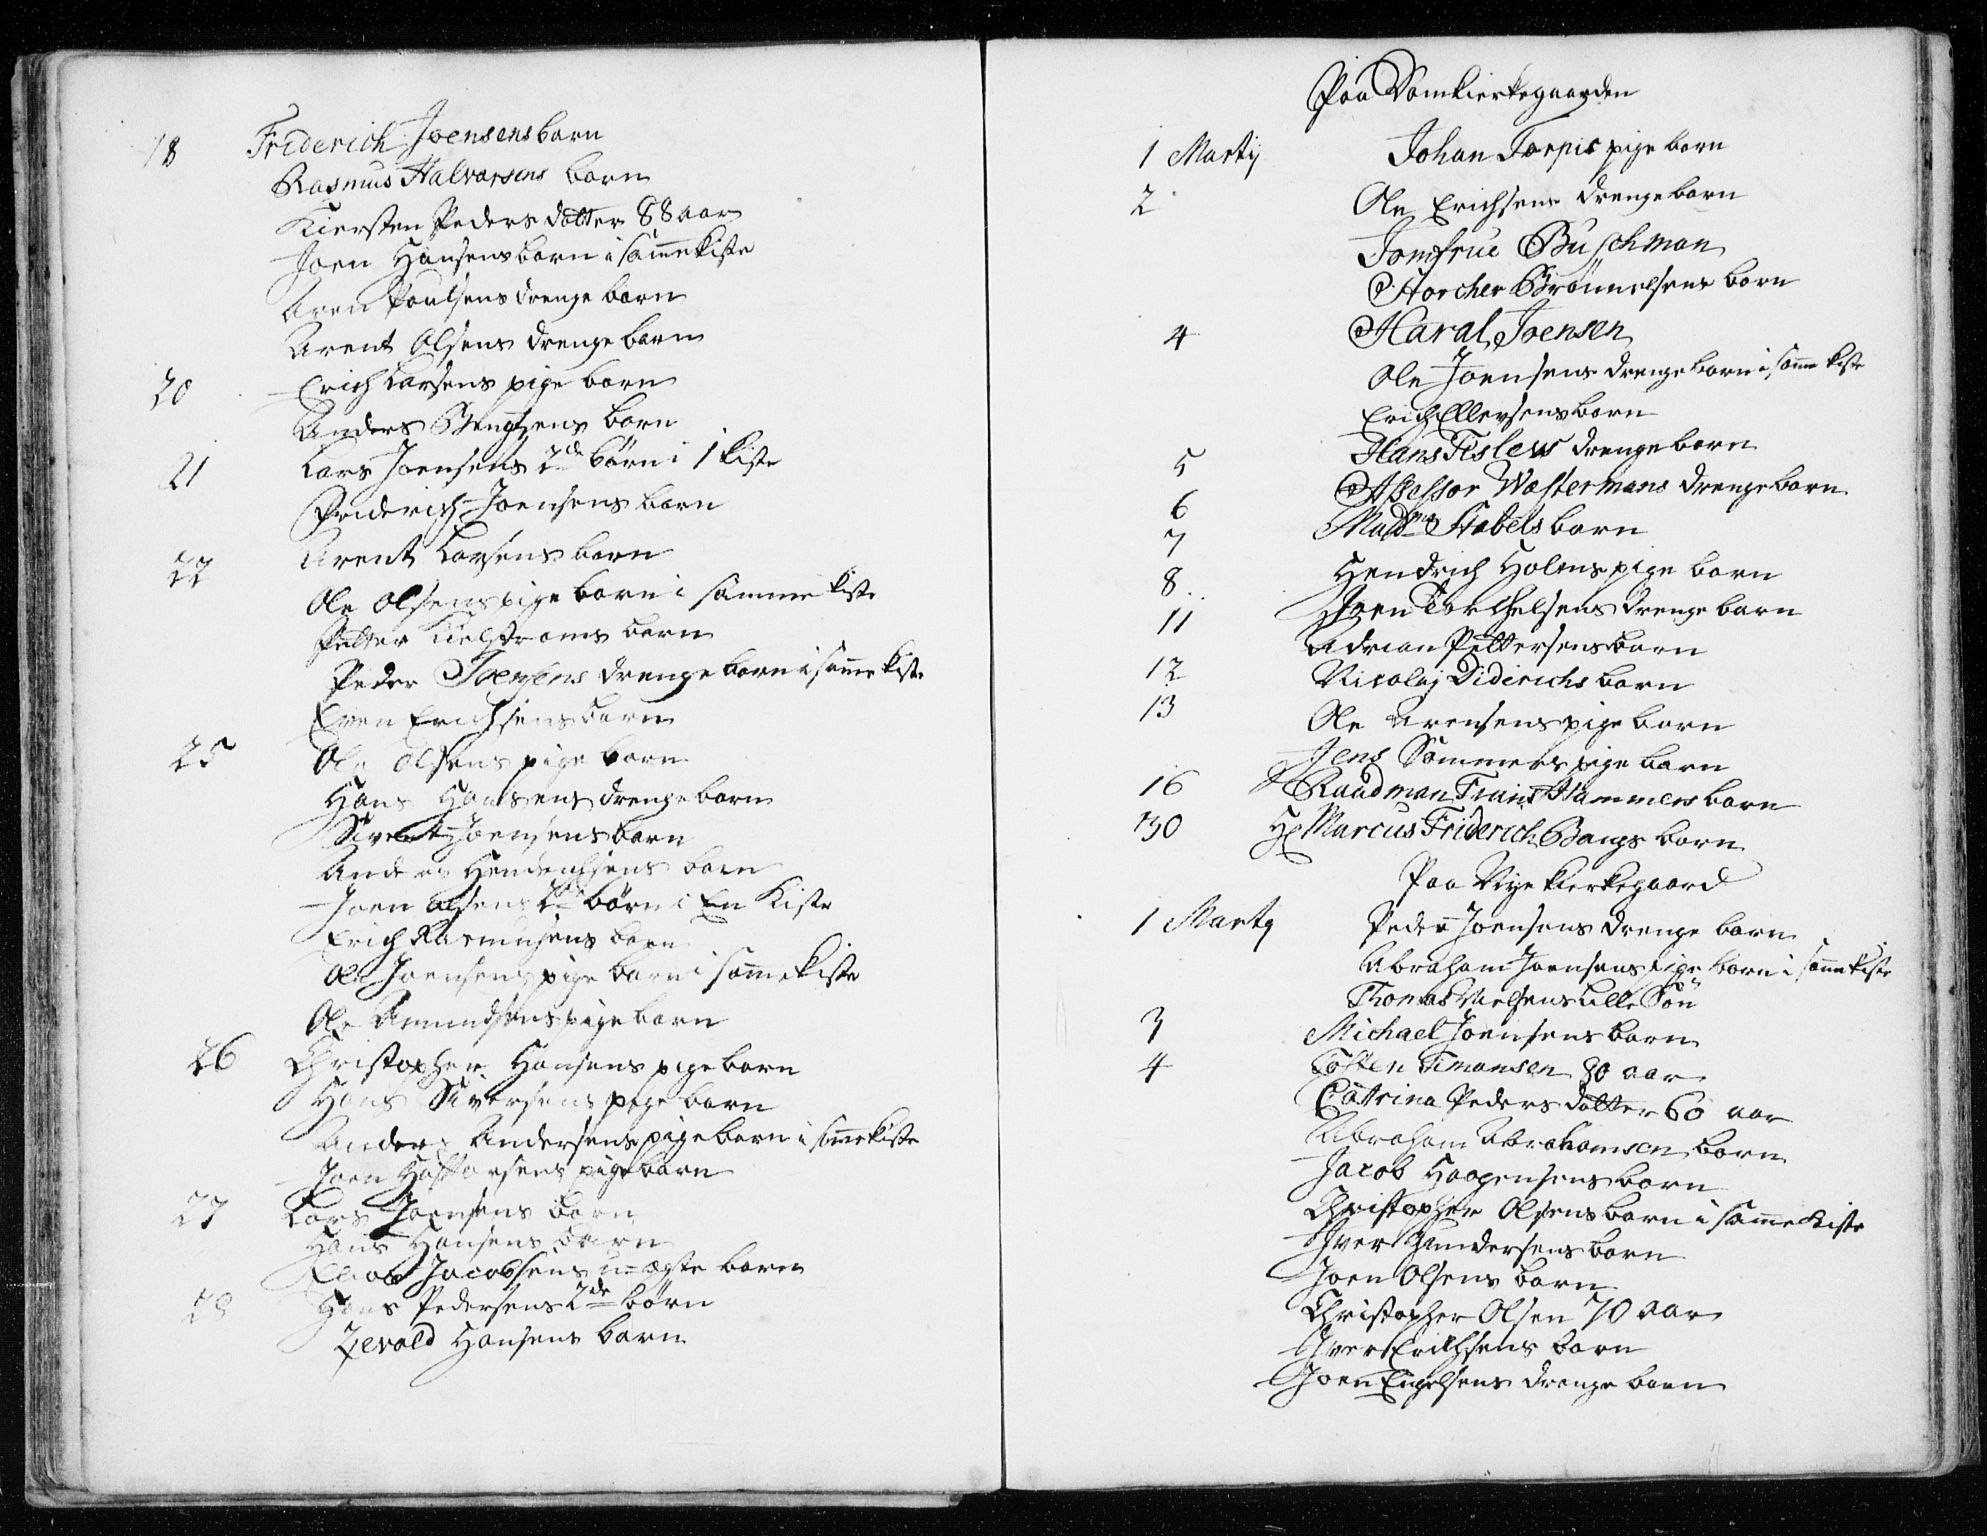 18 Friderich Joensens barn
Rasmus Halvorsens barn
Kiersten Peders datter 88 aar
Joen Hansens barn i sam̄e Kiste
Aren Poulsens drenge barn
Arent Olsens drenge barn
20 Erich Larsens pige barn
Anders Bengtsens barn
21 Lars Joensens 2de børn i 1 Kiste
Friderich Joensens barn
22 Arent Larsens barn
Ole Olsens pige barn i samme Kiste
Petter Kielstroms barn
Peder Joensens drenge barn i sam̄e Kiste
Even Erichsens barn
25 Ole Olsens pige barn
Hans Hansens drenge barn
Sivert Joensens barn
Anders Hendrichsens barn
Joen Olsens 2de børn i En Kiste
Erich Rasmusens barn
Ole Joensens pige barn i sam̄e Kiste
Ole Amundsens pige barn
26 Christopher Hansens pige barn
Hans Siversens pige barn
Anders Andersens pige barn i sam̄e Kiste
Joen pige barn
27 Lars Joensens barn
Hans Hansens barn
Jacobsens u-ægte barn
28 Hans Pedersens 2de børn
Zevald Hansens barn
Paa Domkierkegaarden
1 Martij Johan Torpis pige barn
2 Ole Erichsens drenge barn
Jomfrue Buschman
Storcher barn
4 Haral Joensen
Ole Joensens drenge barn i sam̄e Kiste
Erich Ellevsens barn
Hans Fislers drenge barn
5 Assessor Westermans drenge barn
6 Madme Stabels barn
7 Hendrich Holms pige barn
8 Joen Torchelsens drenge barn
11 Adrian Pettersens barn
12 Nicolaj Diderichs barn
13 Ole Arensens pige barn
Jens Sommers pige barn
16 Raadman Frans Hammers barn
30 Hr Marcus Friderich Bangs barn
Paa Nye Kierkegaard
1 Martij Peder Joensens drenge barn
Abraham Joensens pige barn i sam̄e Kiste
Thomas Nielsens Lille Søn
3 Michael Joensens barn
4 Tosten Timansen 80 aar
Cattrina Peders datter 60 aar
Abraham Abrahamsen barn
Jacob Haagensens barn
Christopher Olsens barn i sam̄e Kiste
Iver Gundersens barn
Joen Olsens barn
Christopher Olsen 70 aar
Iver Erichsens barn
Joen Engelsens drenge barn